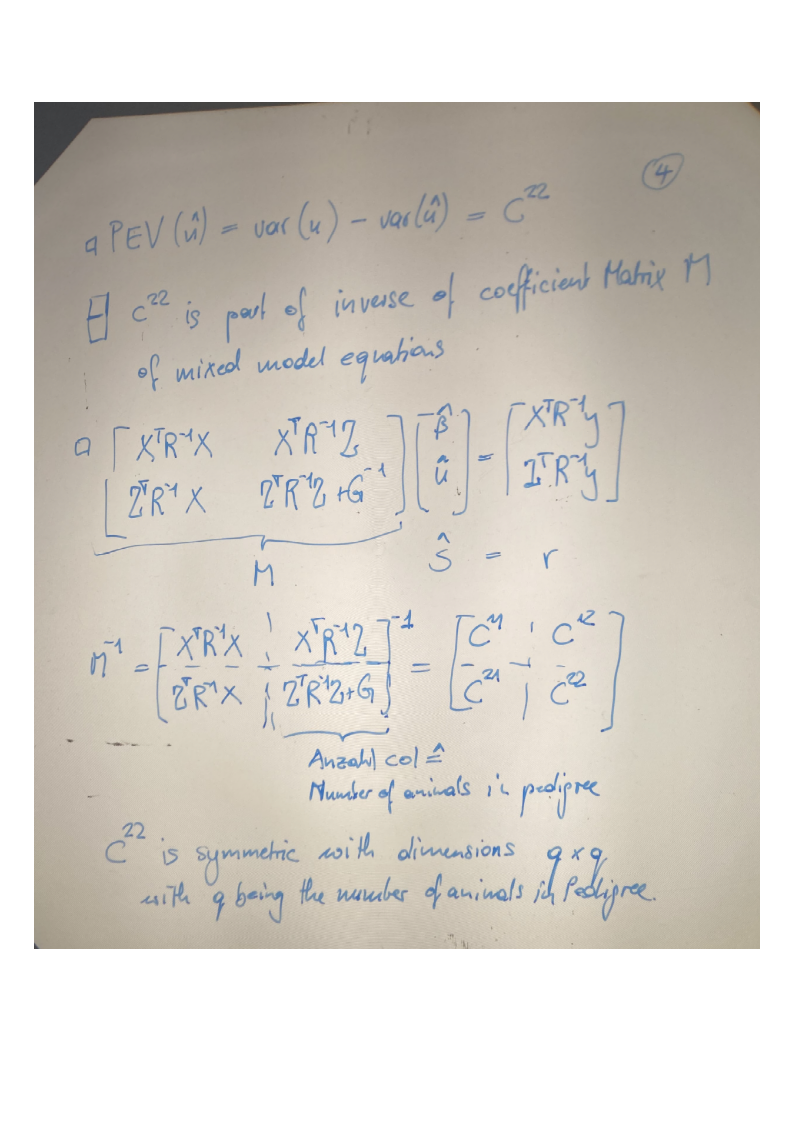 ④
PEV(û) = var(u) − var(û) = C²²
C²² is part of inverse of coefficient Matrix M
of mixed model equations
[ XᵀR⁻¹X XᵀR⁻¹Z ] [ β̂ ] = [ XᵀR⁻¹y ]
[ ZᵀR⁻¹X ZᵀR⁻¹Z + G⁻¹ ] [ û ] [ ZᵀR⁻¹y ]
M ŝ = r
M⁻¹ = [ XᵀR⁻¹X XᵀR⁻¹Z ]⁻¹ = [ C¹¹ C¹² ]
[ ZᵀR⁻¹X ZᵀR⁻¹Z + G ] [ C²¹ C²² ]
Anzahl col ≙
Number of animals in pedigree
C²² is symmetric with dimensions q × q
with q being the number of animals in Pedigree.